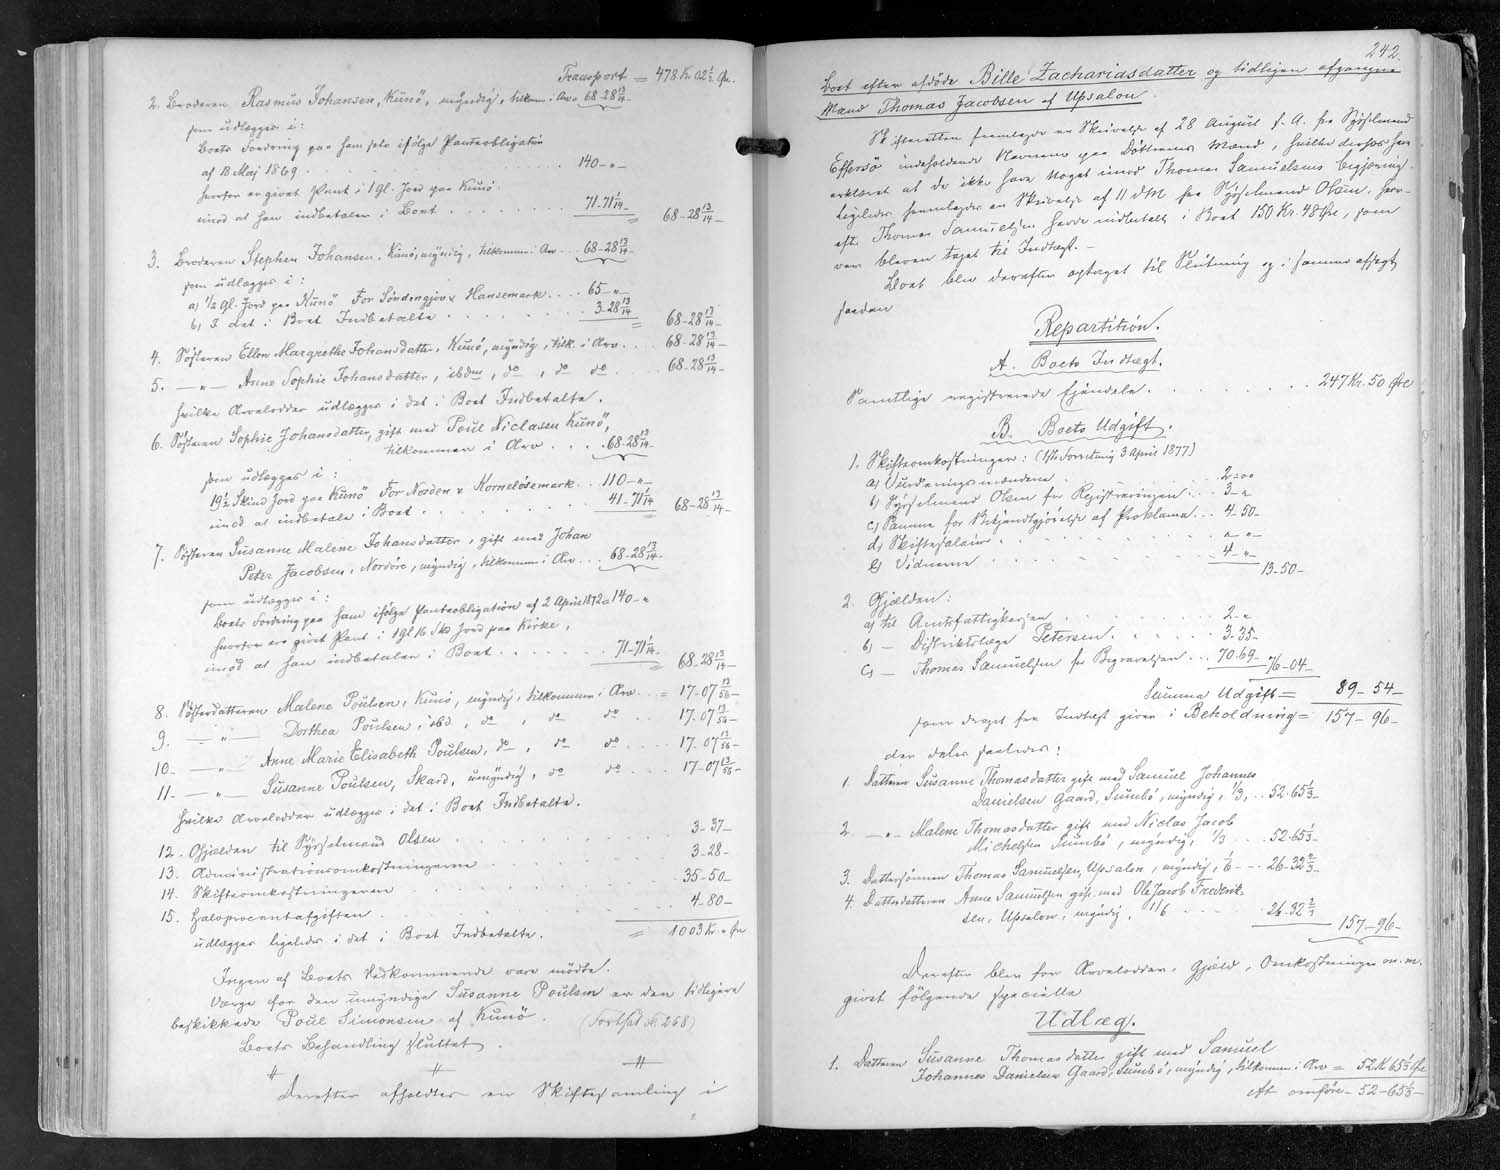 Transport = 478 Kr. 02½ Øre.
2. Broderen Rasmus Johansen, Kunö, myndig, tilkom. i Arv 68-28 13/14
som udlægges i:
Boets Fordring paa ham selv ifölge Panteobligation
af 13 Maj 1869 . . . . . . . . 140-"-
hvorfor er givet Pant i 1 gl. Jord paa Kunö.
imod at han indbetaler i Boet . . . . . . . 71-71 1/14 68-28 13/14
3. Broderen Stephen Johansen, Kunö, myndig, tilkommer i Arv . . 68-28 13/14
som udlægges i:
a) ½ gl. Jord paa Kunö For Söndengjov x Hansemark . . . . 65-"-
b) I det i Boet Indbetalte . . . . . . . 3-28 13/14 68-28 13/14
4. Søsteren Ellen Margrethe Johansdatter, Kunö, myndig, tilk. i Arv . . . 68-28 13/14
5. —"— Anne Sophie Johansdatter, ibdm, do, do do . . . . 68-28 13/14
hvilke Arvelodder udlægges i det i Boet Indbetalte.
6. Søsteren Sophie Johansdatter, gift med Poul Niclasen Kunö,
tilkommer i Arv . . . . 68-28 13/14
som udlægges i:
19½ Skind Jord paa Kunö For Norden x Korneløsemark . . . 110-"-
imod at indbetale i Boet . . . . . . . . 41-71 1/14 68-28 13/14
7. Søsteren Susanne Malene Johansdatter, gift med Johan
Peter Jacobsen, Nordöre, myndig, tilkommer i Arv . . . 68-28 13/14
som udlægges i:
Boets Fordring paa ham ifölge Panteobligation af 2 April 1872 = 140-"
hvorfor er givet Pant i 1 gl 16 Skd Jord paa Kirke,
imod at han indbetaler i Boet . . . . . . . 71-71 1/14 68-28 13/14
8. Søsterdatteren Malene Poulsen, Kunö, myndig, tilkommer i Arv . . = 17-07 13/56
9. —"— Dorthea Poulsen, ibd, do, do do . . . 17.07 13/56
10. —"— Anne Marie Elisabeth Poulsen, do, do do . . . . 17.07 13/56
11. —"— Susanne Poulsen, Skard, umyndig, do do . . . 17-07 13/56
hvilke Arvelodder udlægges i det i Boet Indbetalte.
12. Gjælden til Sysselmand Olsen . . . . . . . 3-37-
13. Administrationsomkostningerne . . . . . . . 3-28-
14. Skifteomkostningerne . . . . . . . 35-50-
15. Halvprocentafgiften . . . . . . . 4-80-
udlægges ligeledes i det i Boet Indbetalte. = 1003 Kr. " Øre
Ingen af Boets Vedkommende vare mödte.
Værge for den umyndige Susanne Poulsen er den tidligere
beskikkede Poul Simonsen af Kunö. (Fortsat S. 268)
Boets Behandling sluttet.
Derefter afholdtes en Skiftesamling i
242.
Boet efter afdöde Bille Zachariasdatter og tidligen afgangne
Mand Thomas Jacobsen af Upsalon.
Skifteretten fremlagde en Skrivelse af 28 August f. A. fra Sysselmand
Effersö indeholdende Navnene paa Døttrenes Mænd, hvilke derhos har
erklæret at de ikke have Noget imod Thomas Samuelsens begjæring.
Ligeledes fremlagdes en Skrivelse af 11 d M fra Sysselmand Olsen, hvor-
efter Thomas Samuelsen havde indbetalt i Boet 150 Kr. 48 Øre, som
var bleven taget til Indtægt. -
Boet blev derefter optaget til Slutning og i samme afsagt
saadan
Repartition.
A. Boets Indtægt.
Samtlige registrerede Ejendele . . . . . . . . 247 Kr. 50 Øre
B. Boets Udgift.
1. Skifteomkostninger: (Forretning 3 April 1877)
a) Vurderingsmændene . . . . . 2-00
b) Sysselmand Olsen for Registreringen . . . . 3-"
c) Samme for Bekjendtgjörelse af Proklama . . . 4-50-
d) Skiftesalair . . . . . . . "-"-
e) Vidnerne . . . . . . . 4-"- 13-50-
2. Gjælden:
a) til Amtsfattigkassen . . . . . . . 2-"
b) — Distriktslæge Petersen . . . . . . 3-35-
c) — Thomas Samuelsen for Begravelsen . . . 70.69- 76-04-
Summa Udgift = 89-54-
som draget fra Indtægt giver i Beholdning = 157-96-
der deles saaledes:
1. Datteren Susanne Thomasdatter gift med Samuel Johannes
Danielsen Gaard, Sumbö, myndig, 1/3, . . 52.65 1/3-
2. —"— Malene Thomasdatter gift med Niclas Jacob
Michelsen Sumbö, myndig, 1/3 . . . . 52.65 1/3-
3. Dattersönnen Thomas Samuelsen, Upsalon, myndig, 1/6 - . . 26-32 2/3-
4. Datterdatteren Anne Samuelsen gift med Ole Jacob Frederik-
sen, Upsalon, myndig, 1/6 . . . . . 26-32 2/3 157-96-
Derefter blev for Arvelodder, Gjæld, Omkostninger m.m.
givet fölgende specielle
Udlæg.
1. Datteren Susanne Thomasdatter gift med Samuel
Johannes Danielsen Gaard, Sumbö, myndig, tilkommer i Arv = 52 Kr 65 1/3 Øre
At omföre - 52-65 1/3-